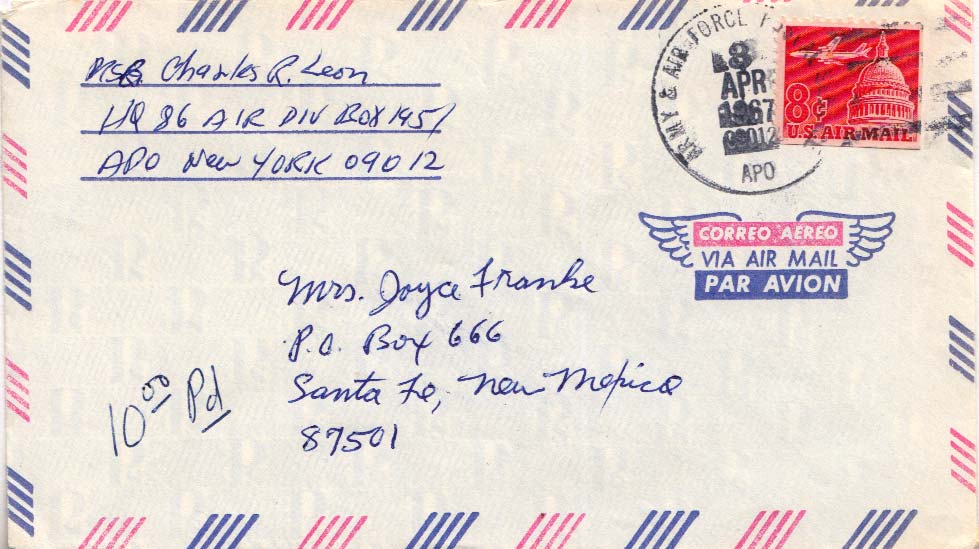 Charles R. Leon
HQ 86 AIR DIV BOX 1451
APO New YORK 09012
ARMY & AIR FORCE
8
APR
1967
09012
APO
8¢
U.S. AIR MAIL
CORREO AEREO
VIA AIR MAIL
PAR AVION
Mrs. Joyce Franke
P.O. Box 666
Santa Fe, New Mexico
87501
10 00 Pd